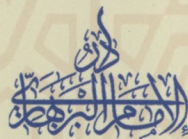 دار
الإمام البربهاري